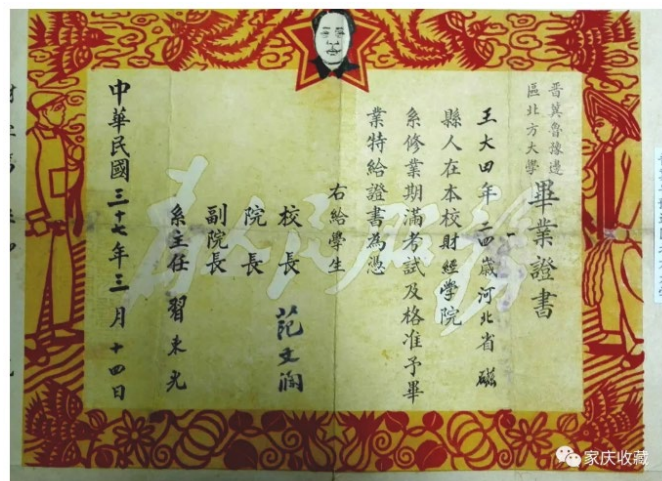 晋冀魯豫邊
區北方大學
畢業證書
王大田年二四歲河北省磁
縣人在本校財經學院
系修業期滿考試及格准予畢
業特給證書為憑
右給學生
校長 范文瀾
院長
副院長
系主任 習東光
中華民國三十七年三月十四日
為人民服務
家庆收藏